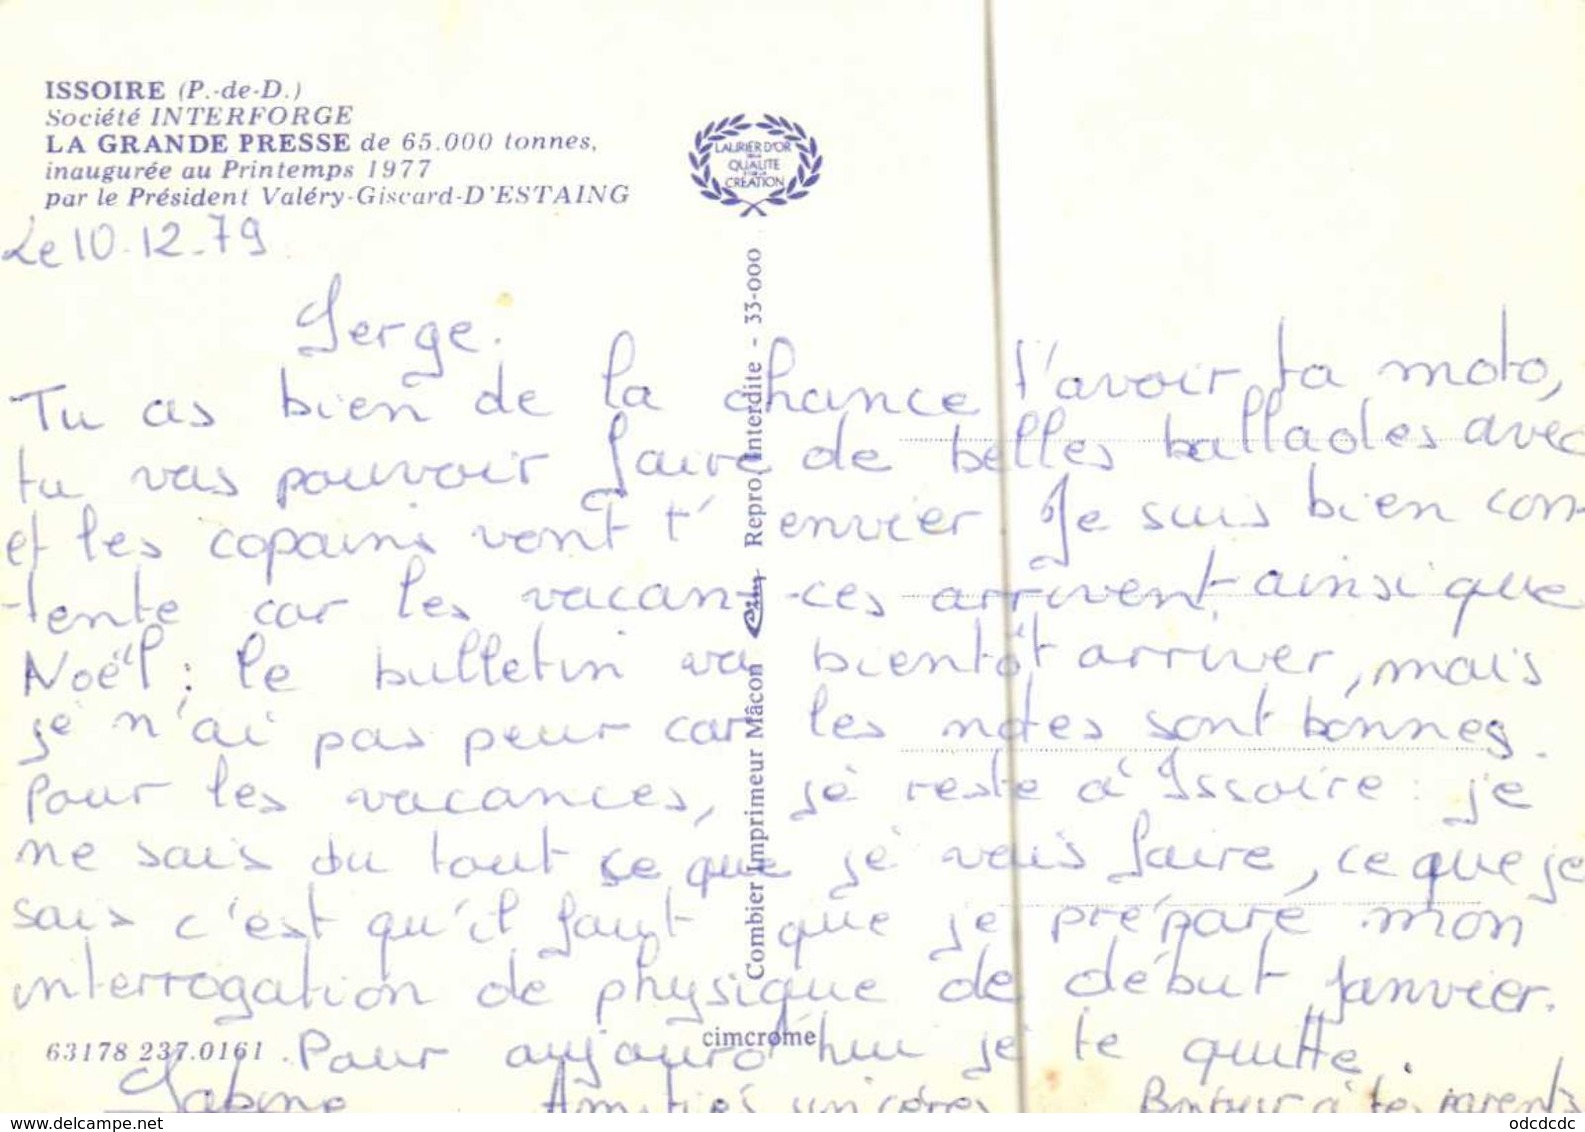 ISSOIRE (P.-de-D.)
Société INTERFORGE
LA GRANDE PRESSE de 65.000 tonnes,
inaugurée au Printemps 1977
par le Président Valéry-Giscard-D'ESTAING
LAURIER D'OR
QUALITE
CREATION
Le 10-12-79
Serge.
Tu as bien de la chance t'avoir ta moto,
tu vas pouvoir faire de belles ballades avec
et les copains vont t'envier. Je suis bien con-
-tente car les vacan-ces arrivent ainsi que
Noël ; le bulletin va bientôt arriver, mais
je n'ai pas peur car les notes sont bonnes.
Pour les vacances, je reste à Issoire : je
ne sais du tout ce que je vais faire, ce que je
sais c'est qu'il faut que je prépare mon
interrogation de physique de début janvier.
Pour aujourd'hui je te quitte.
Sabine Amitiés sincères Bonjour à tes parents
Combier Imprimeur Mâcon Cim Repro. Interdite - 33-000
63178 237.0161
cimcrome
www.delcampe.net
odcdcdc